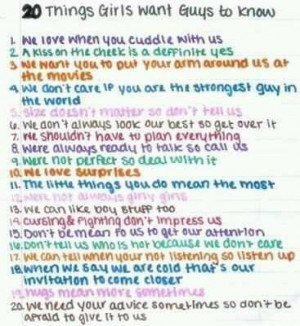 20 Things Girls Want Guys to know
1. We love when you cuddle with us
2. A kiss on the cheek is a deffinite yes
3. We want you to put your arm around us at
the movies
4. We don't care IF you are the strongest guy in
the world
5. size doesn't matter so don't tell us
6. We don't always look our best so get over it
7. We shouldn't have to plan everything
8. were always ready to talk so call us
9. were not perfect so deal with it
10. We love surprises
11. The little things you do mean the most
12. were not always girly girls
13. we can like boy stuff too
14. cursing & fighting don't impress us
15. Don't be mean to us to get our attention
16. Don't tell us who is hot because we don't care
17. We can tell when your not listening so listen up
18. When we say we are cold that's our
invitation to come closer
19. hugs mean more sometimes
20. we need your advice sometimes so don't be
afraid to give it to us